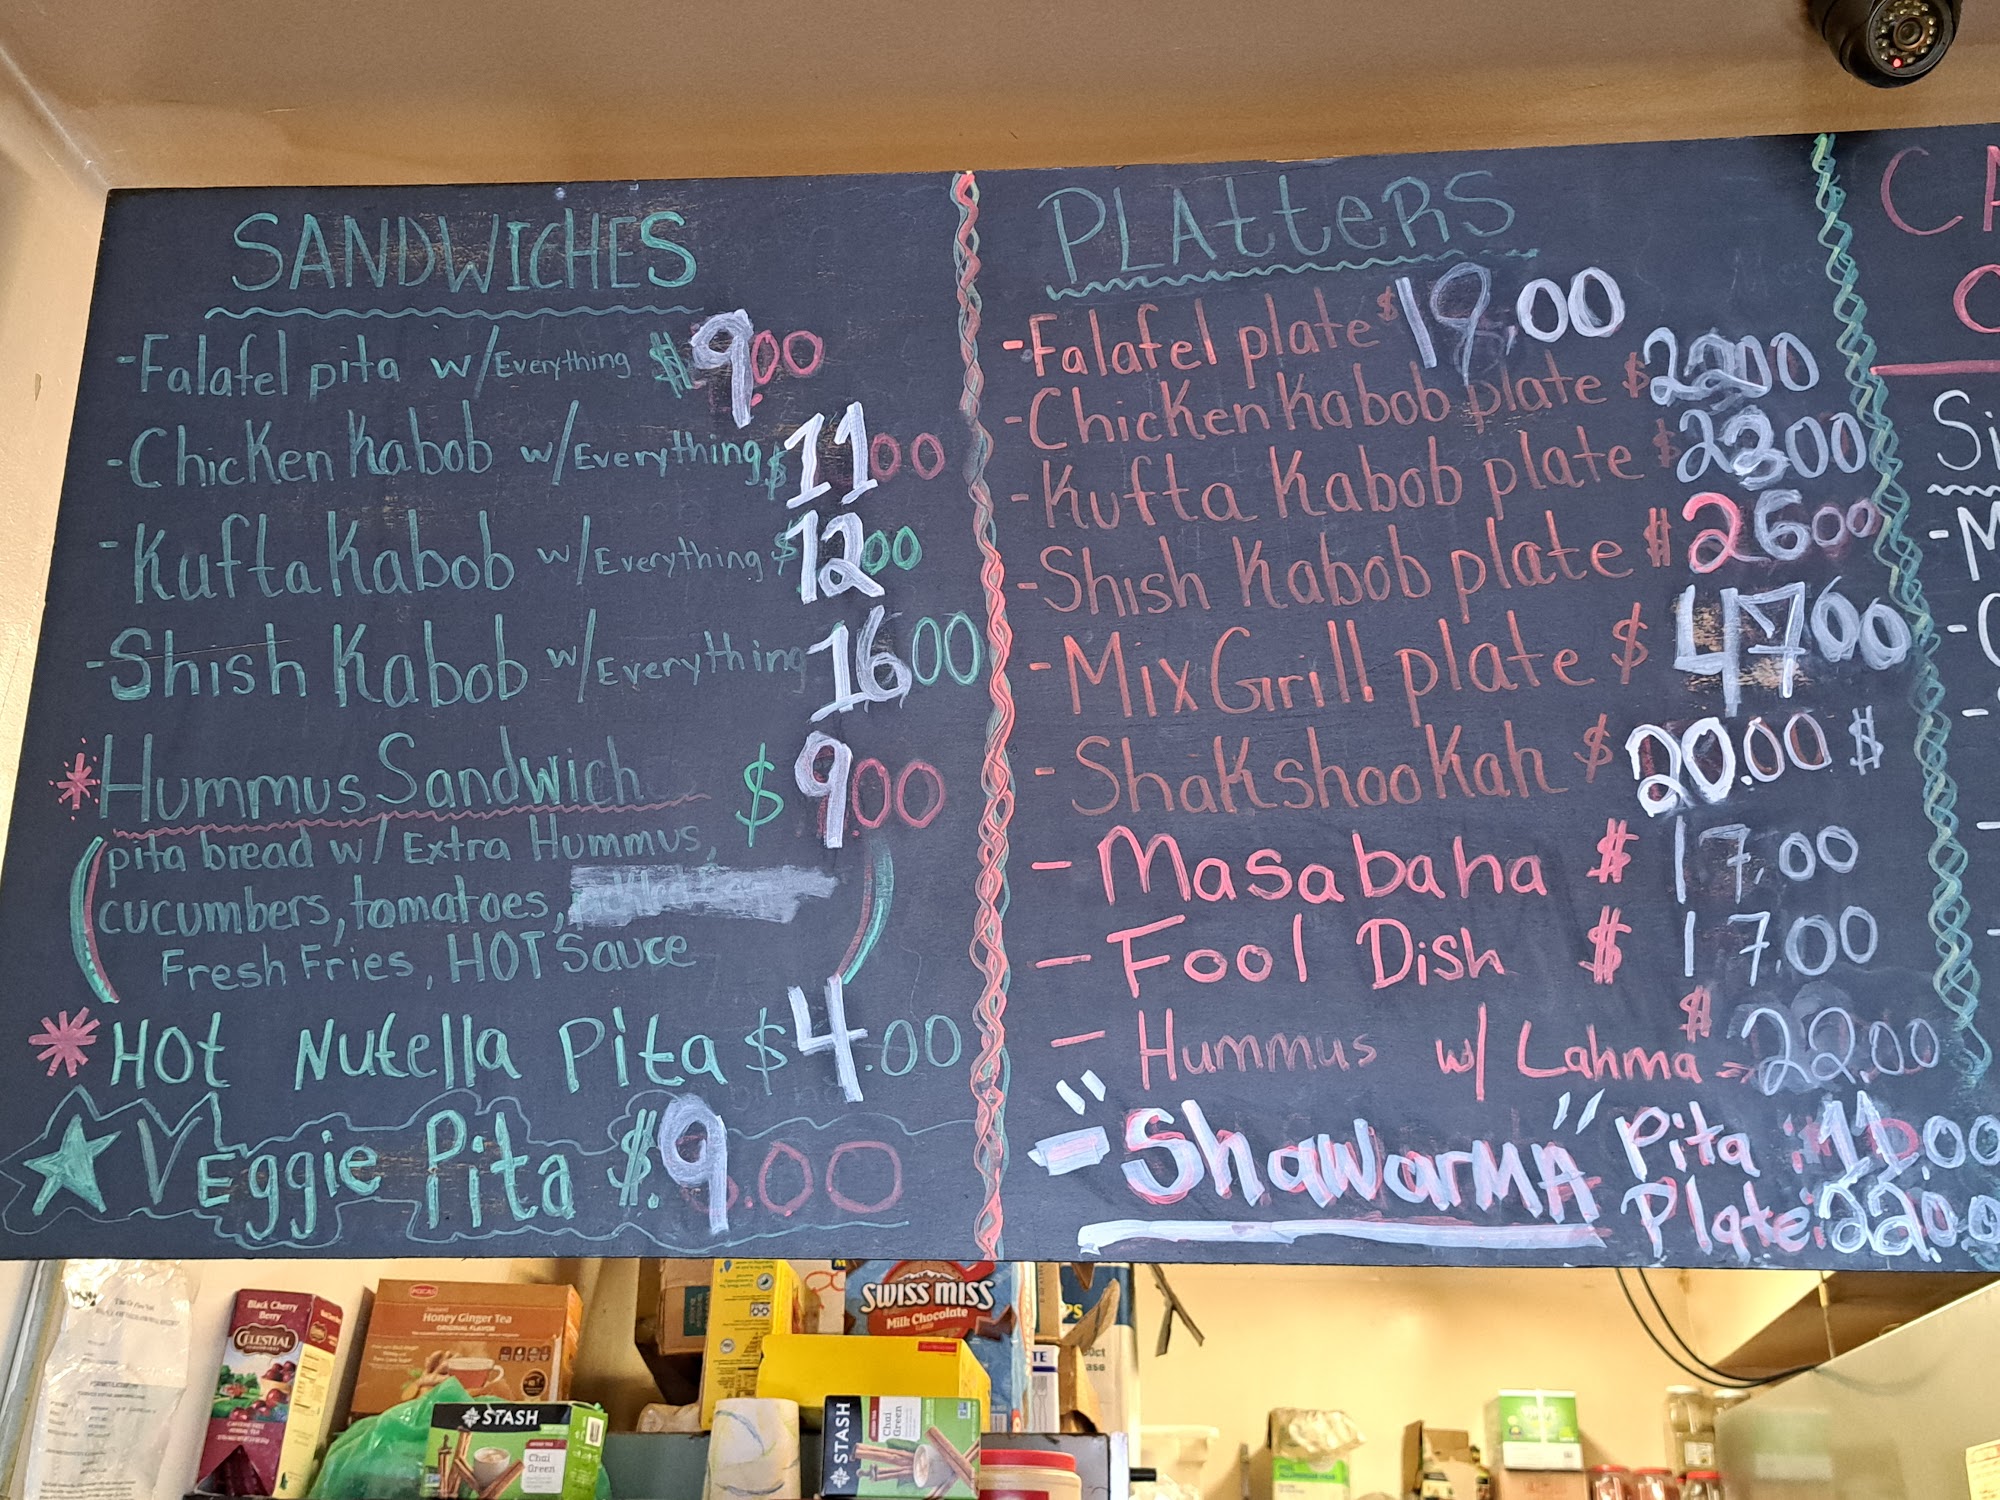 SANDWICHES
-Falafel pita w/Everything $9.00
-Chicken Kabob w/Everything $11.00
-Kufta Kabob w/Everything $12.00
-Shish Kabob w/Everything 16.00
*Hummus Sandwich $9.00
(pita bread w/ Extra Hummus,
cucumbers, tomatoes,
Fresh Fries, HOT Sauce)
*HOt Nutella Pita $4.00
VEggie Pita $.9.00
PLAtteRS
-Falafel plate $19.00
-Chicken Kabob plate $2200
-Kufta Kabob plate $2300
-Shish Kabob plate $2600
-Mix Grill plate $4700
-Shakshookah $20.00 $
-Masabaha $17.00
-Fool Dish $17.00
-Hummus w/ Lahma $22.00
-"ShawarMA" Pita : 11.00
Plate: 22.00
CA
Si
Black Cherry
Berry
CELESTIAL
Honey Ginger Tea
ORIGINAL FLAVOR
SWISS MISS
Milk Chocolate
STASH
Chai
Green
STASH
Chai
Green